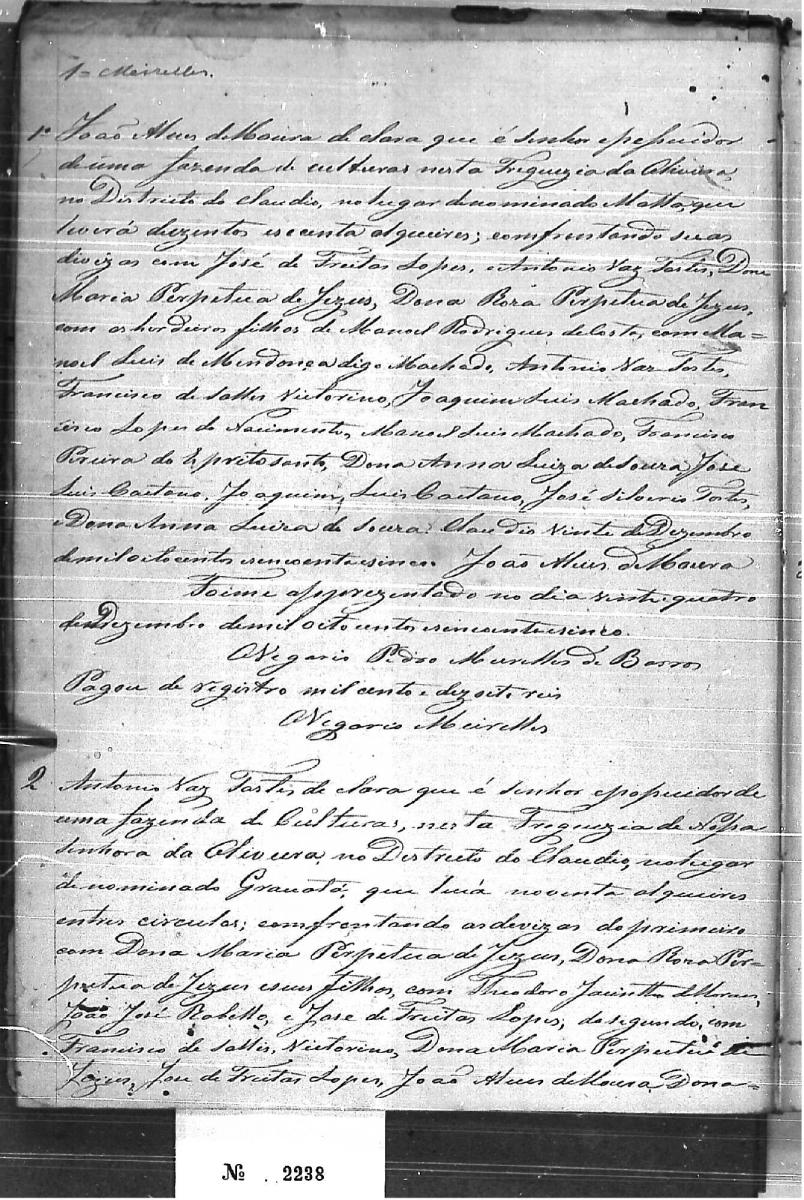 1= Meirelles.
1º João Alves de Moura de clara que é Senhor epossuidor
de uma fazenda de culturas nesta Freguezia da Oliveira
no Districto do Claudio, no lugar denominado Matta, que
levará duzentos esecenta alqueires; comfrontando suas
divizas com José de Freitas Lopes, e Antonio Vaz Tostes, Dona
Maria Perpetua de Jezus, Dona Roza Perpetua de Jezus,
com os herdeiros filhos de Manoel Rodrigues da Costa, com Ma=
noel Luis de Mendonça digo Machado, Antonio Vaz Tostes,
Francisco de Salles Victorino, Joaquim Luis Machado, Fran
cisco Lopes do Nacimento, Manoel Luis Machado, Francisco
Pereira do Espritosanto, Dona Anna Luiza de Souza, Jose
Luis Caetano, Joaquim Luis Caetano, José Silverio Tostes,
e Dona Anna Luiza de Souza. Claudio Vinte de Dezembro
de mil oitocentos esincoentaesinco. João Alves de Moura
Foime apprezentado no dia vinte quatro
de Dezembro de mil oitocentos esincoentaesinco.
O Vegario Pedro Meirelles de Barros
Pagou de registro mil cento e dezoito reis
O Vegario Meirelles
2 Antonio Vaz Tostes de clara que é Senhor epossuidor de
uma fazenda de Culturas, nesta Freguezia de Nossa
Senhora da Oliveira, no Districto do Claudio, no lugar
de nominado Gravatá, que levá noventa alqueires
entres circulos; comfrontando as devizas do primeiro
com Dona Maria Perpetua de Jezus, Dona Roza Per=
petua de Jezus eseus filhos, com Theodoro Jacintho de Moraes,
João José Rabello, e Jose de Freitas Lopes, do segundo, com
Francisco de Salles Victorino, Dona Maria Perpetua de
Jezus, Jose de Freitas Lopes, João Alves de Moura, Dona=
Nº . 2238